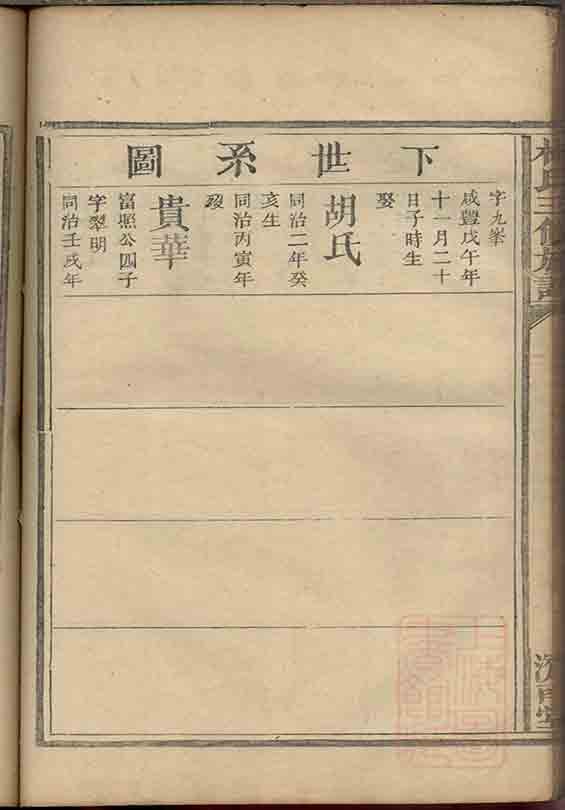 下世系圖
字九峯
咸豐戊午年
十一月二十
日子時生
娶
胡氏
同治二年癸
亥生
同治丙寅年
歿
貴華
富照公四子
字翠明
同治壬戌年
氏三修族譜